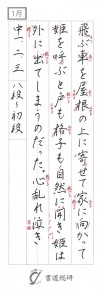 1月
飛ぶ車を屋根の上に寄せて家に向かって
姫を呼ぶと戸も格子も自然に開き姫は
外に出てしまうのだった。心乱れ泣き
中一、二、三 八段〜初段
書道総研